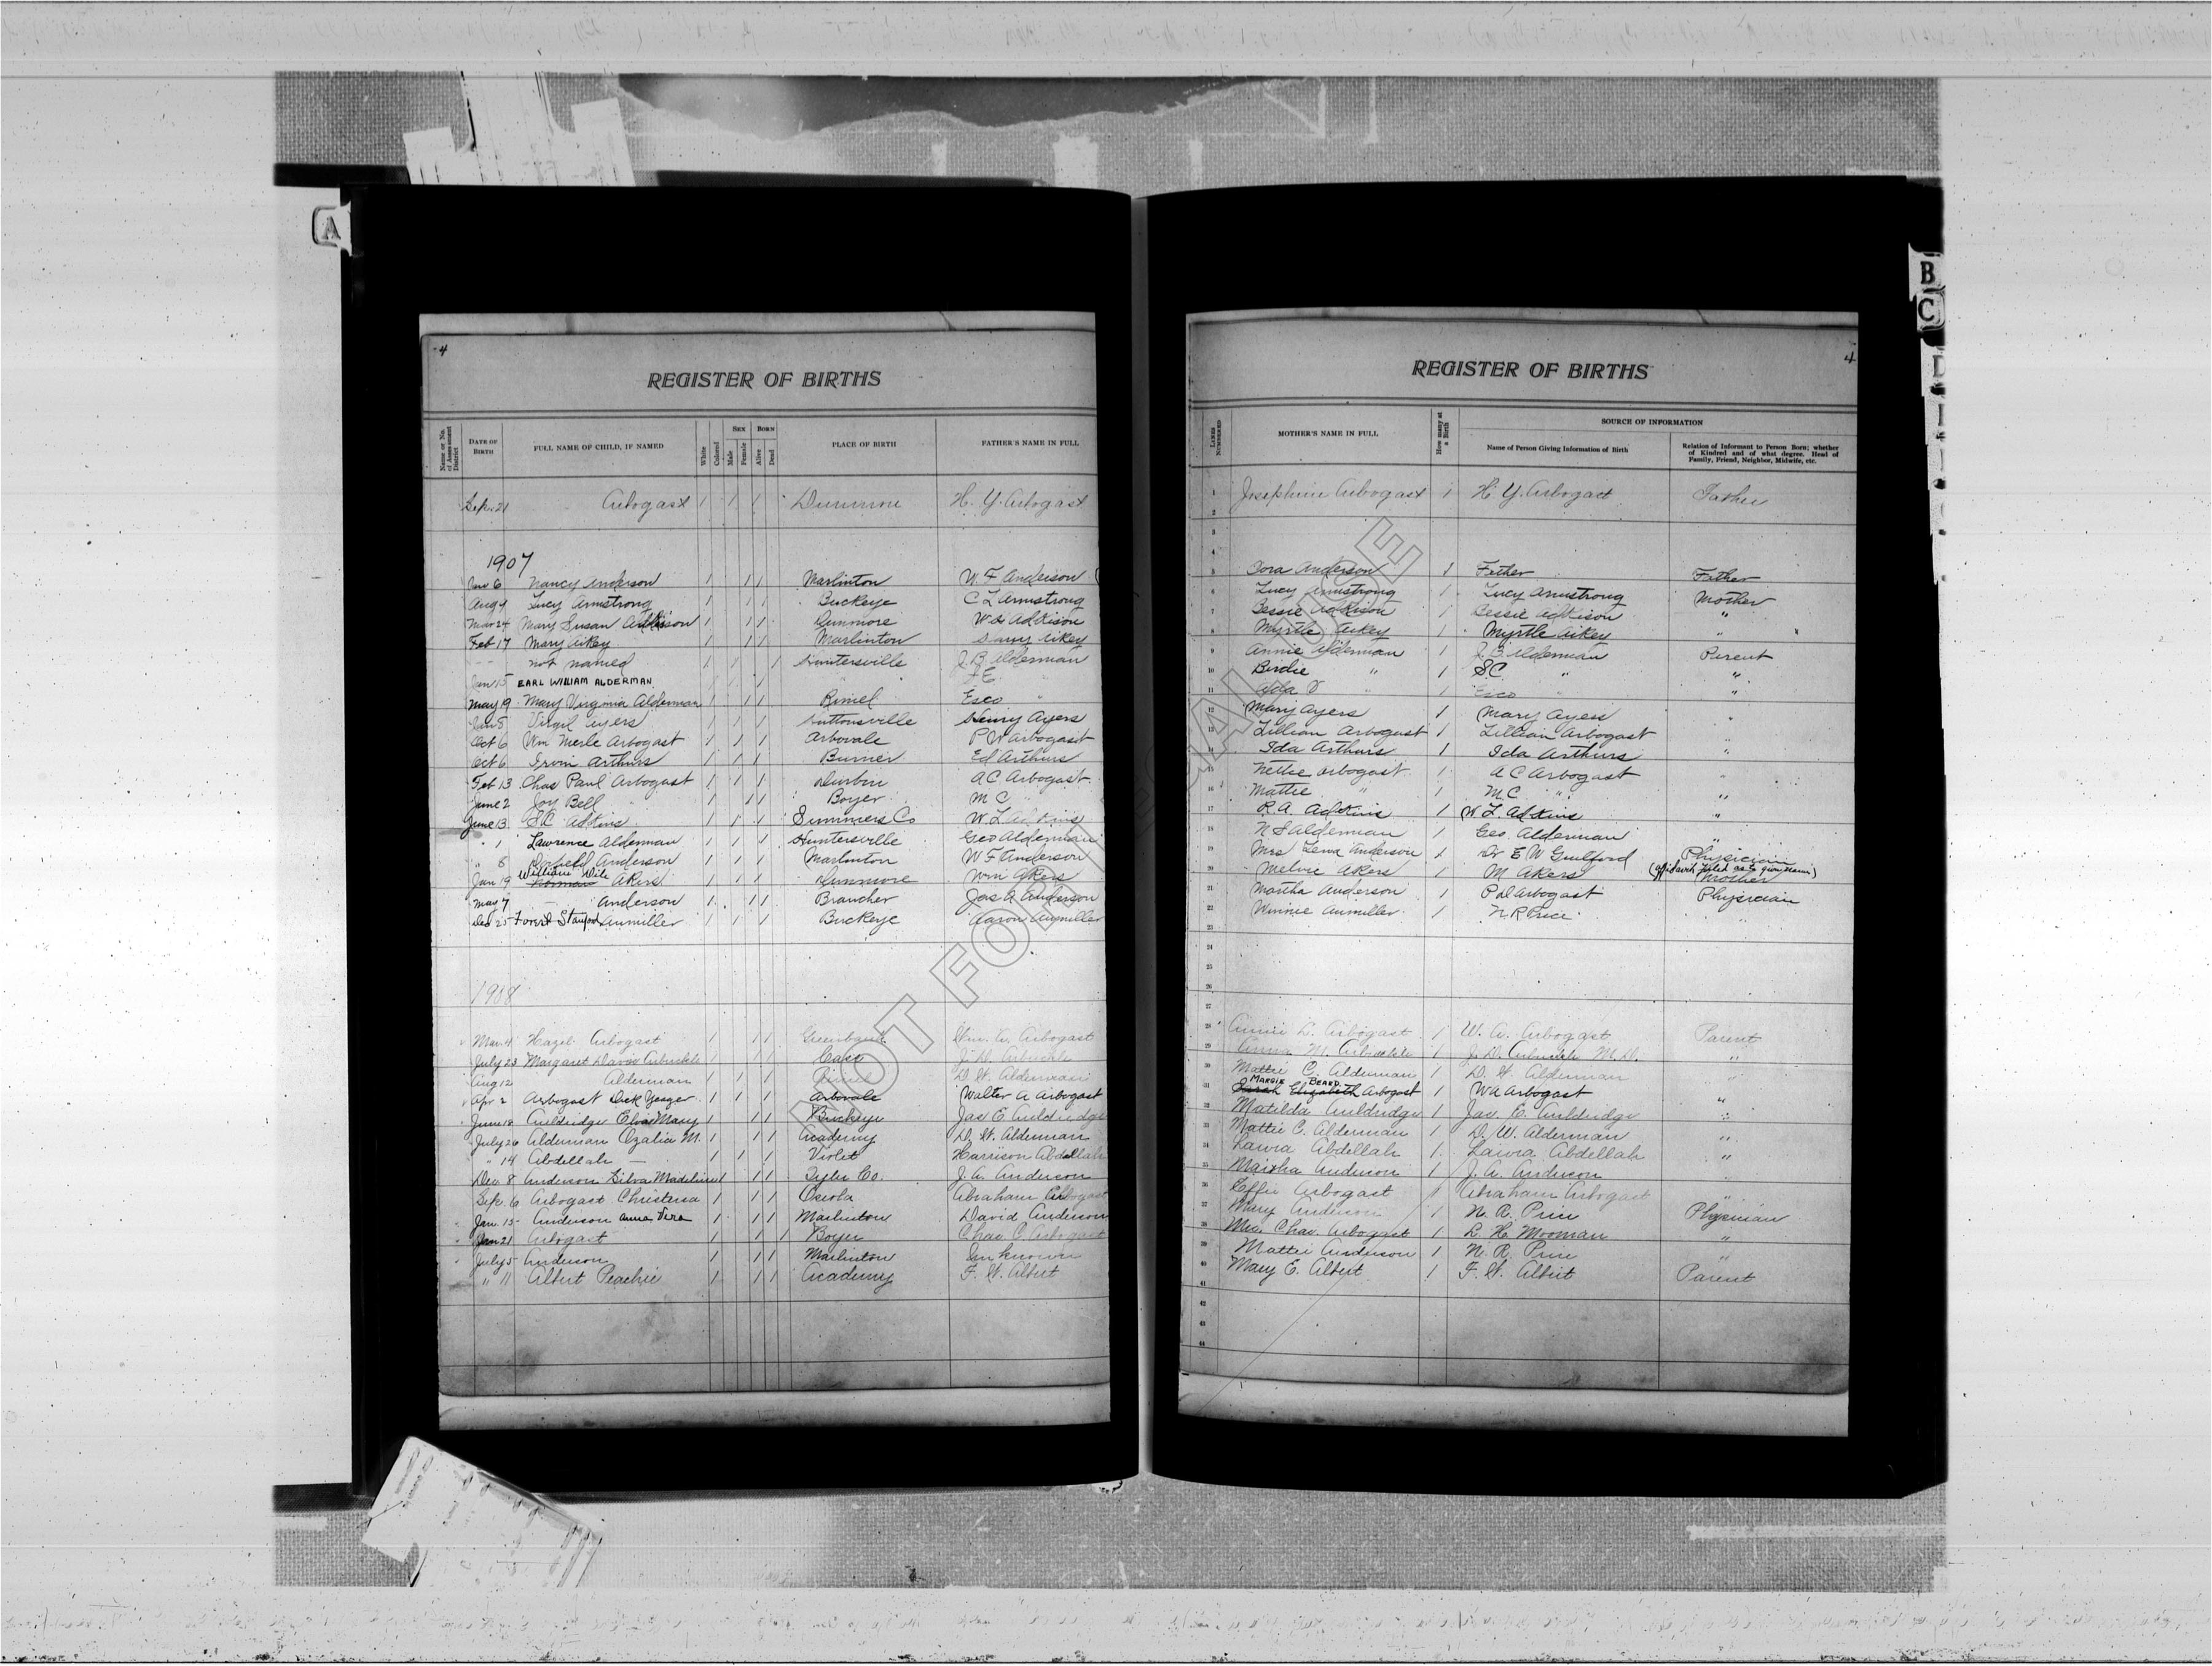 A
B
C
D
4
REGISTER OF BIRTHS
Name or No. of Assessment District
DATE OF BIRTH
FULL NAME OF CHILD, IF NAMED
White
Colored
SEX
Male
Female
BORN
Alive
Dead
PLACE OF BIRTH
FATHER'S NAME IN FULL
Sept 21 Arbogast 1 1 1 Dunmore H. Y. Arbogast
1907
Nancy Anderson 1 1 1 Marlinton W. F Anderson
Aug 9 Lucy Armstrong 1 1 1 Buckeye C L Armstrong
Mar 24 Mary Susan Adkison 1 1 1 Dunmore Adkison
Feb 17 Mary Aikey 1 1 1 Marlinton Harry Aikey
not named 1 1 1 Huntersville J. B. Alderman
Jan 15 EARL WILLIAM ALDERMAN
May 19 Mary Virginia Alderman 1 1 1 Rimel Esco "
Jan 8 Virgil Ayers 1 1 1 Huttonsville Henry Ayers
Oct 6 Wm Merle Arbogast 1 1 1 Arbovale P W Arbogast
Oct 6 Irvin Arthurs 1 1 1 Burner Ed Arthurs
Feb 13 Chas Paul Arbogast 1 1 1 Durbin A C Arbogast
June 2 Joy Bell " 1 1 1 Boyer M C "
June 13 S.C. Adkins 1 1 1 Summers Co W. L Adkins
" 1 Lawrence Alderman 1 1 1 Huntersville Geo Alderman
" 8 Anderson 1 1 1 Marlinton W F Anderson
Jan 19 William Akers 1 1 1 Dunmore Wm Akers
May 7 Anderson 1 1 1 Braucher Jas A Anderson
Dec 25 Forest Aumiller 1 1 1 Buckeye Aaron Aumiller
1908
Mar 4 Hazel Arbogast 1 1 1 Greenbank Wm. A. Arbogast
July 23 Margaret Davis Arbuckle 1 1 1 Cass J. D. Arbuckle
Aug 12 Alderman 1 1 1 Rimel D. W. Alderman
Apr 2 Arbogast Dick Yeager 1 1 1 Arbovale Walter A Arbogast
June 18 Auldridge Mary 1 1 1 Buckeye Jas E Auldridge
July 26 Alderman Ozalia M. 1 1 1 Academy D. W. Alderman
" 14 Abdellah 1 1 1 Violet Harrison Abdellah
Dec 8 Anderson Silva Madeline 1 1 1 Tyler Co. J. A. Anderson
Sept. 6 Arbogast Christena 1 1 1 Osceola Abraham Arbogast
Jan. 15 Anderson Anna Vera 1 1 1 Marlinton David Anderson
Jan 21 Arbogast 1 1 1 Boyer Chas. C. Arbogast
July 5 Anderson 1 1 1 Marlinton Unknown
" 11 Albert Peachie 1 1 1 Academy F. W. Albert
4
REGISTER OF BIRTHS
LINES NUMBERED
MOTHER'S NAME IN FULL
How many at a Birth
SOURCE OF INFORMATION
Name of Person Giving Information of Birth
Relation of Informant to Person Born; whether of Kindred and of what degree. Head of Family, Friend, Neighbor, Midwife, etc.
1 Josephine Arbogast 1 H. Y. Arbogast Father
2
3
4
5 Anderson 1 Father Father
6 Lucy Armstrong 1 Lucy Armstrong Mother
7 Bessie Adkison 1 Bessie Adkison "
8 Myrtle Aikey 1 Myrtle Aikey "
9 Annie Alderman 1 J. B. Alderman Parent
10 Birdie " 1 S.C. " "
11 Ada " 1 Esco " "
12 Mary Ayers 1 Mary Ayers "
13 Lillian Arbogast 1 Lillian Arbogast "
14 Ida Arthurs 1 Ida Arthurs "
15 Nettie Arbogast 1 A C Arbogast "
16 Mattie " 1 M. C. " "
17 R. A. Adkins 1 W. L. Adkins "
18 N S Alderman 1 Geo. Alderman "
19 Mrs Anderson 1 Dr E W Guilford Physician
20 Melvie Akers 1 M Akers Mother
21 Martha Anderson 1 Arbogast Physician
22 Winnie Aumiller 1 N R Price "
23
24
25
26
27
28 Annie L. Arbogast 1 W. A. Arbogast Parent
29 Anna M. Arbuckle 1 J. D. Arbuckle M. D. "
30 Mattie C. Alderman 1 D. W. Alderman "
MARGIE BEARD
31 Sarah Elizabeth Arbogast 1 W A Arbogast "
32 Matilda Auldridge 1 Jas. E. Auldridge "
33 Mattie C. Alderman 1 D. W. Alderman "
34 Laura Abdellah 1 Laura Abdellah "
35 Martha Anderson 1 J. A. Anderson "
36 Effie Arbogast 1 Abraham Arbogast "
37 Mary Anderson 1 N. R. Price Physician
38 Mrs. Chas. Arbogast 1 L. H. Mooman "
39 Mattie Anderson 1 N. R. Price "
40 Mary E. Albert 1 F. W. Albert Parent
41
42
43
44
NOT FOR LEGAL USE